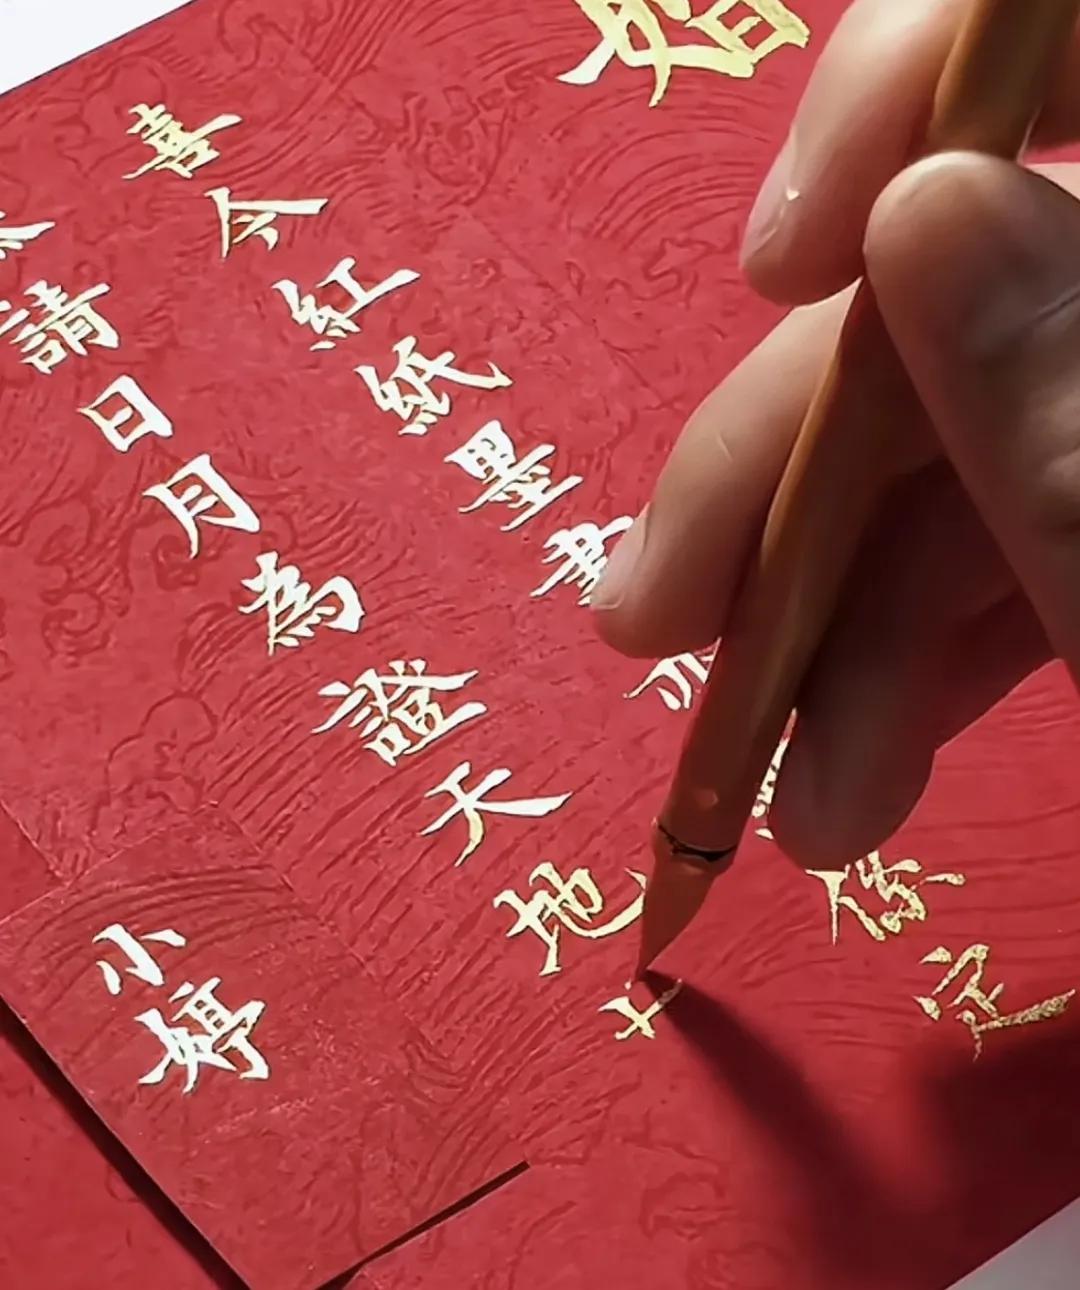 婚
喜今紅紙墨書 定
請日月為證天地
小婷